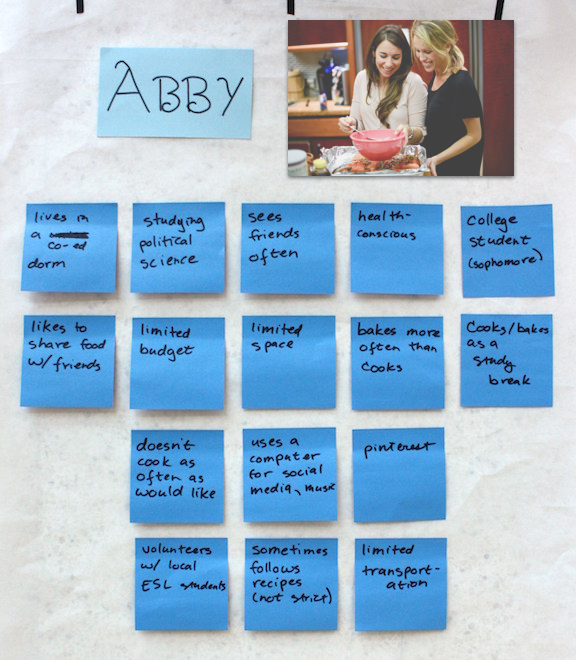 ABBY
lives in
a
co-ed
dorm
studying
political
science
sees
friends
often
health-
conscious
College
student
(sophomore)
likes to
share food
w/ friends
limited
budget
limited
space
bakes more
often than
cooks
Cooks/bakes
as a
study
break
doesn't
cook as
often as
would like
uses a
computer
for social
media, music
pinterest
volunteers
w/ local
ESL students
sometimes
follows
recipes
(not strict)
limited
transport-
ation